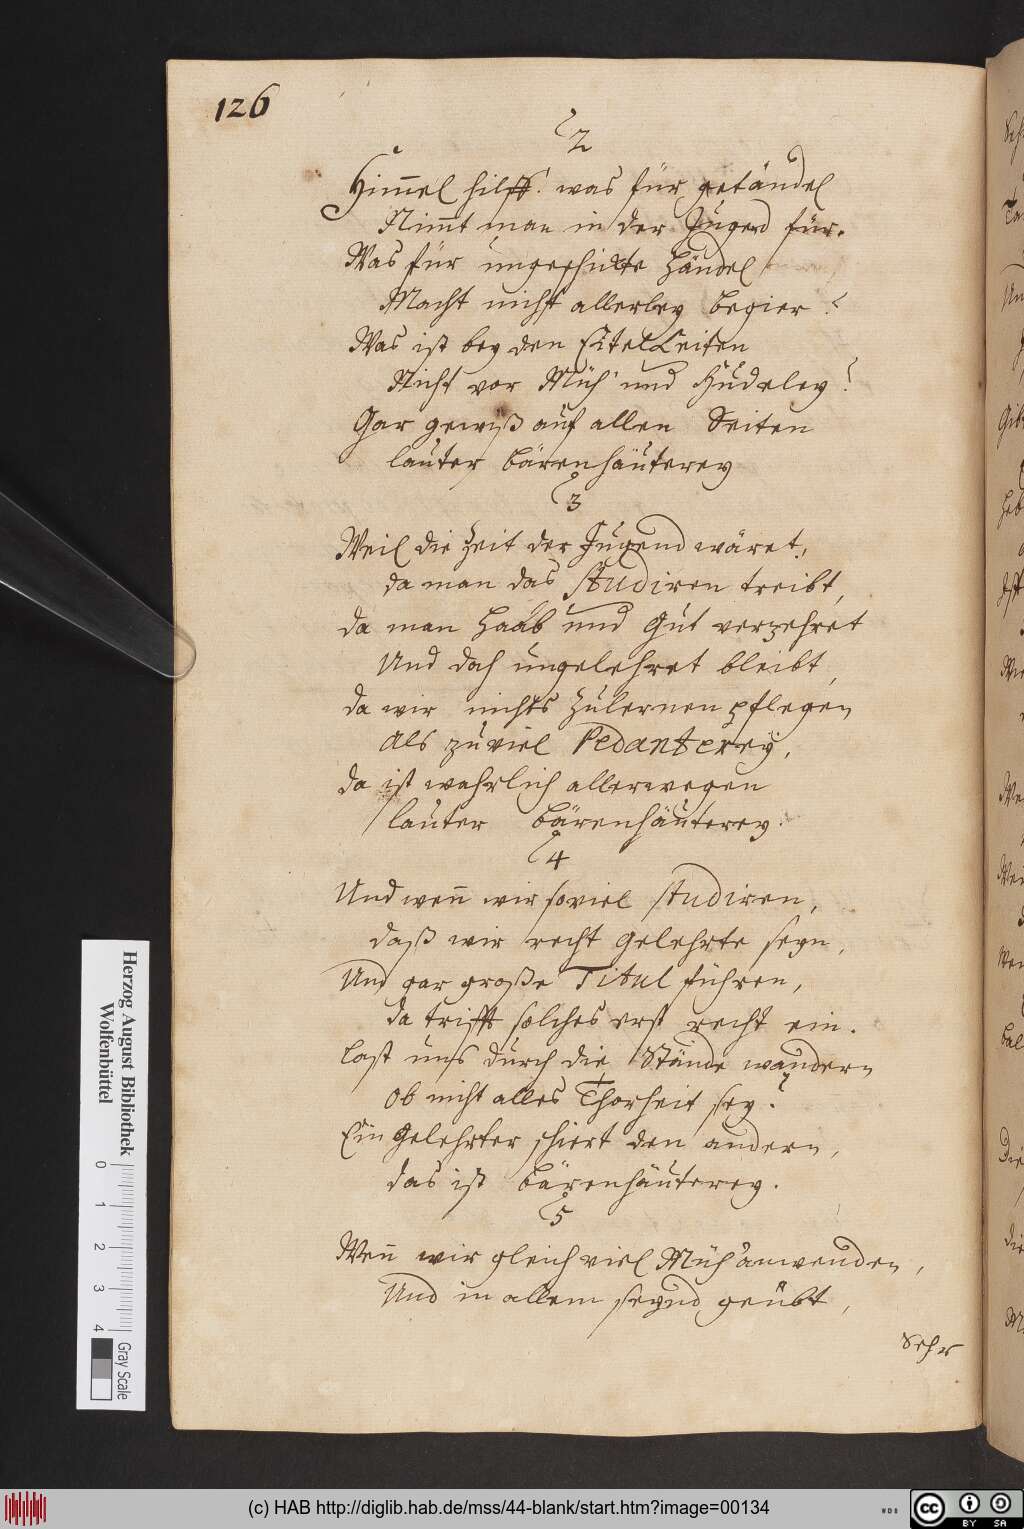 126
2
Himmel hilff! was für getändel
Nimmt man in der Jugend für.
Was für ungeschickte Händel
Macht nicht allerley begier?
Was ist bey den Eitelkeiten
Nicht vor Müh und Hudeley?
Gar gewiß auf allen Seiten
lauter bärenhäuterey
3
Weil die Zeit der Jugend wäret,
da man das studiren treibt,
da man Haab und Gut verzehret
Und doch ungelehret bleibt,
da wir nichts zulernen pflegen
Als zuviel Pedanterey,
da ist wahrlich allerwegen
lauter bärenhäuterey.
4
Und wenn wir soviel studiren,
daß wir recht gelehrte seyn,
Und gar große Titul führen,
da trifft solches erst recht ein.
last uns durch die Stände wandern
Ob nicht alles Thorheit sey?
Ein Gelehrter schiert den andern,
das ist bärenhäuterey.
5
Wenn wir gleich viel Müh anwenden,
Und in allem seynd geübt,
Sehr
Herzog August Bibliothek
Wolfenbüttel
0 1 2 3 4
Gray Scale
(c) HAB http://diglib.hab.de/mss/44-blank/start.htm?image=00134
WDB
cc BY SA